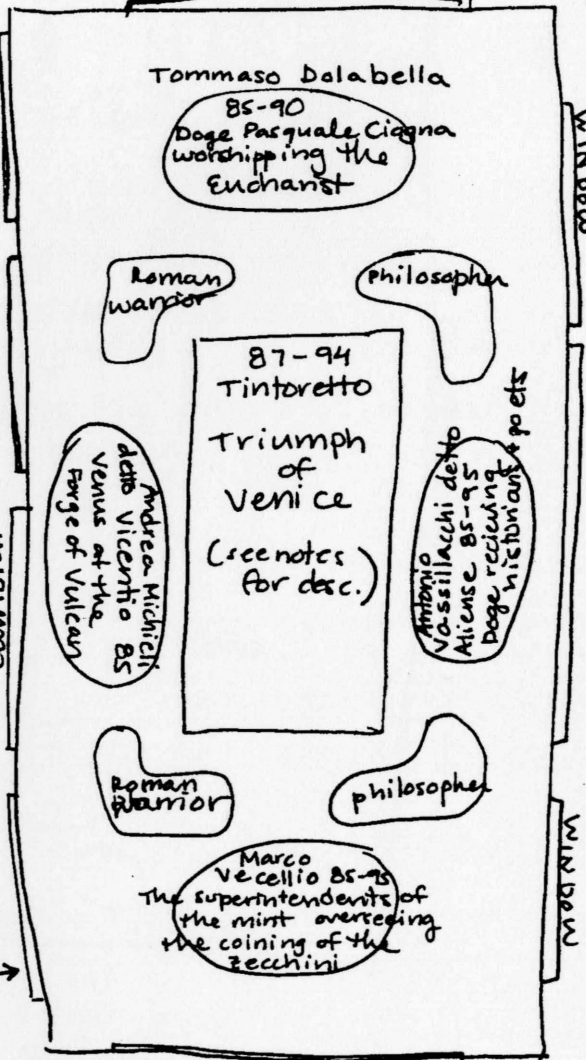 Tommaso Dolabella
85-90
Doge Pasquale Ciogna
worshipping the
Eucharist
WINDOW
Roman
warrior
Philosopher
87-94
Tintoretto
Triumph
of
Venice
(see notes
for desc.)
Andrea Michieli
detto Vicentio 85
Venus at the
Forge of Vulcan
Antonio
Vassillacchi detto
Aliense 85-95
Doge recieving
historians + poets
Roman
warrior
philosopher
WINDOW
Marco
Vecellio 85-95
The superintendents of
the mint overseeing
the coining of the
zecchini